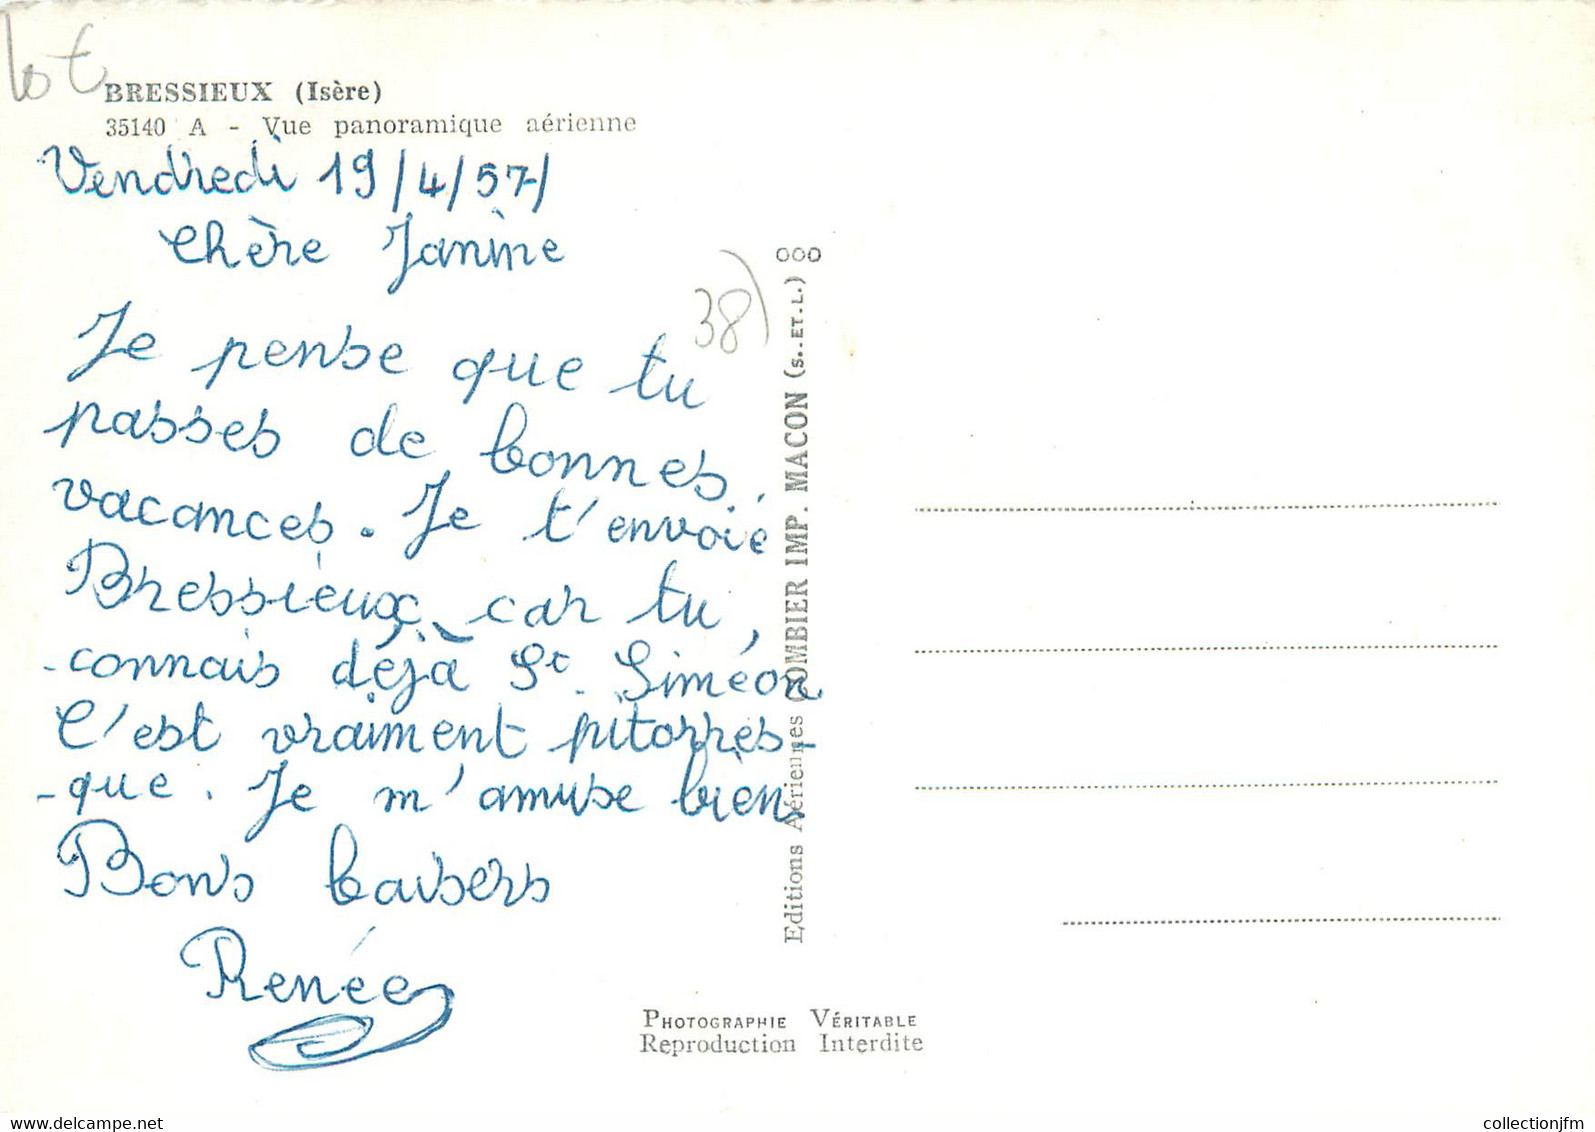 lot
BRESSIEUX (Isère)
35140 A - Vue panoramique aérienne
Vendredi 19/4/57/
Chère Janine
Je pense que tu
passes de bonnes
vacances. Je t'envoie
Bressieux car tu
connais déjà St. Siméon
C'est vraiment pitorres-
-que. Je m'amuse bien.
Bons baisers
Renée
38)
Editions Aériennes COMBIER IMP. MACON (S.-ET-L.) OOO
PHOTOGRAPHIE VÉRITABLE
Reproduction Interdite
www.delcampe.net
collectionjfm